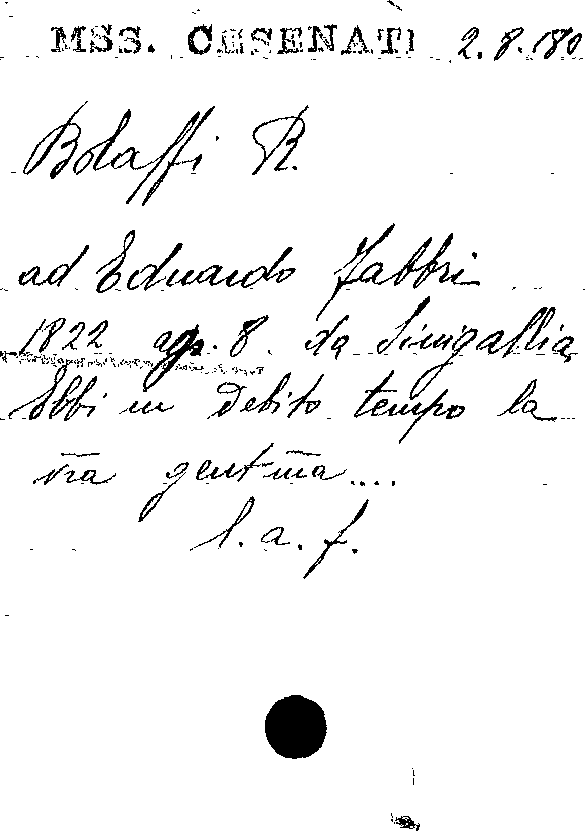 MSS. CESENATI 2.8.180
Bolaffi R.
ad Eduardo Fabbri
1822 ag. 8. da Sinigallia
Ebbi in debito tempo la
vra gent̄ma....
l. a. f.